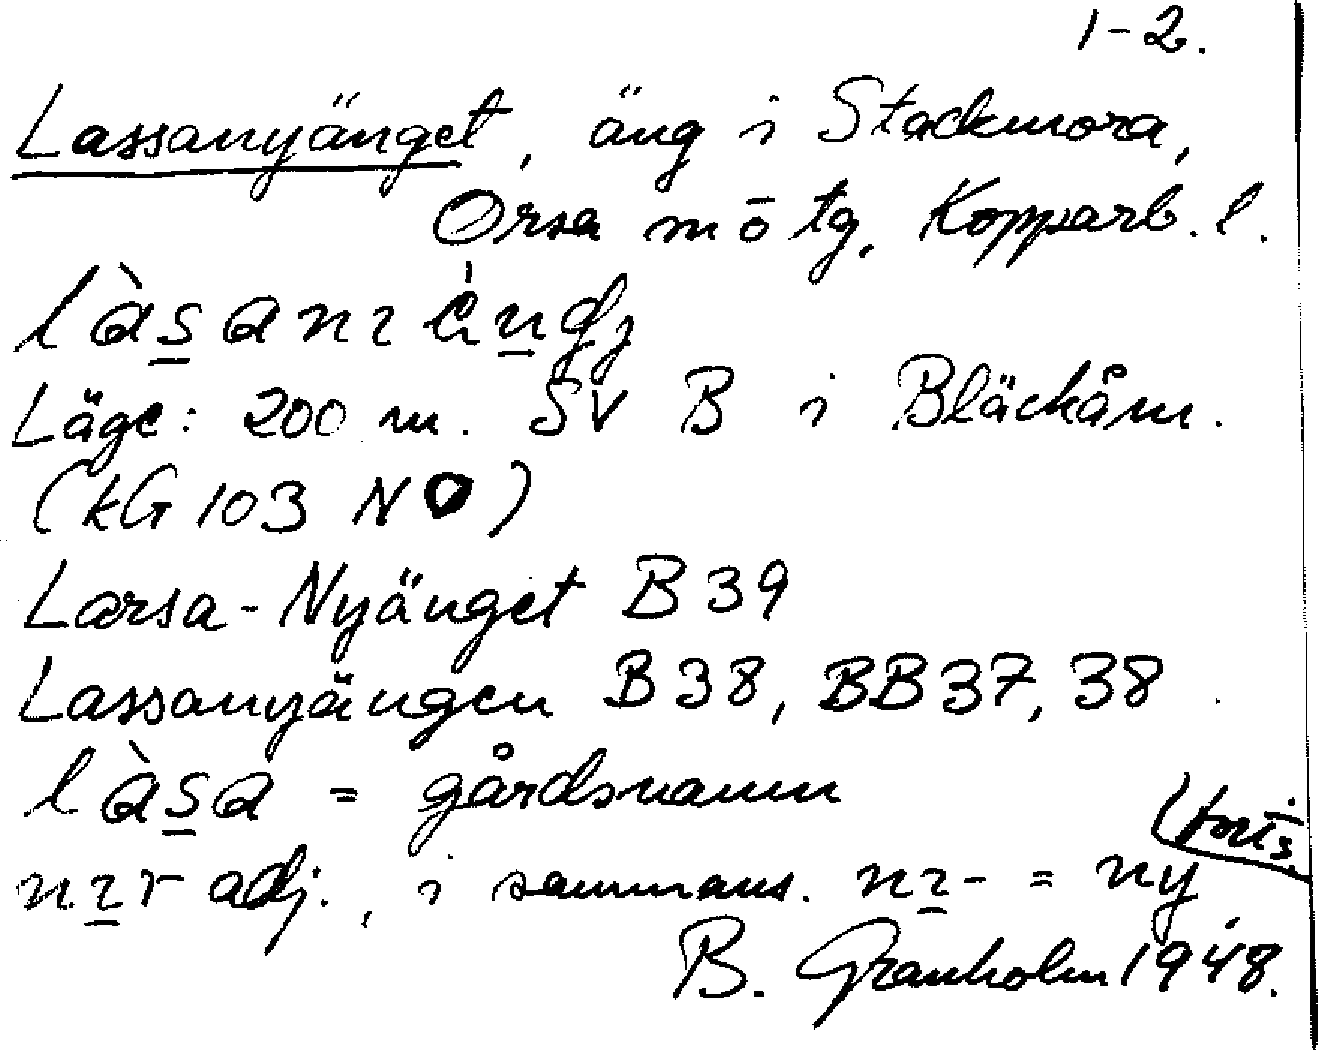 1-2.
Lassanyänget, äng i Stackmora,
Orsa m ō tg, Kopparb. l.
Läge: 200 m. SV B i Bläckåm.
(kG 103 NO)
Larsa-Nyänget B 39
Lassanyängen B 38, BB 37, 38
làs̲a = gårdsnamn
(forts.
nı̲r adj., i sammans. nı̲- = ny
B. Granholm 1948.